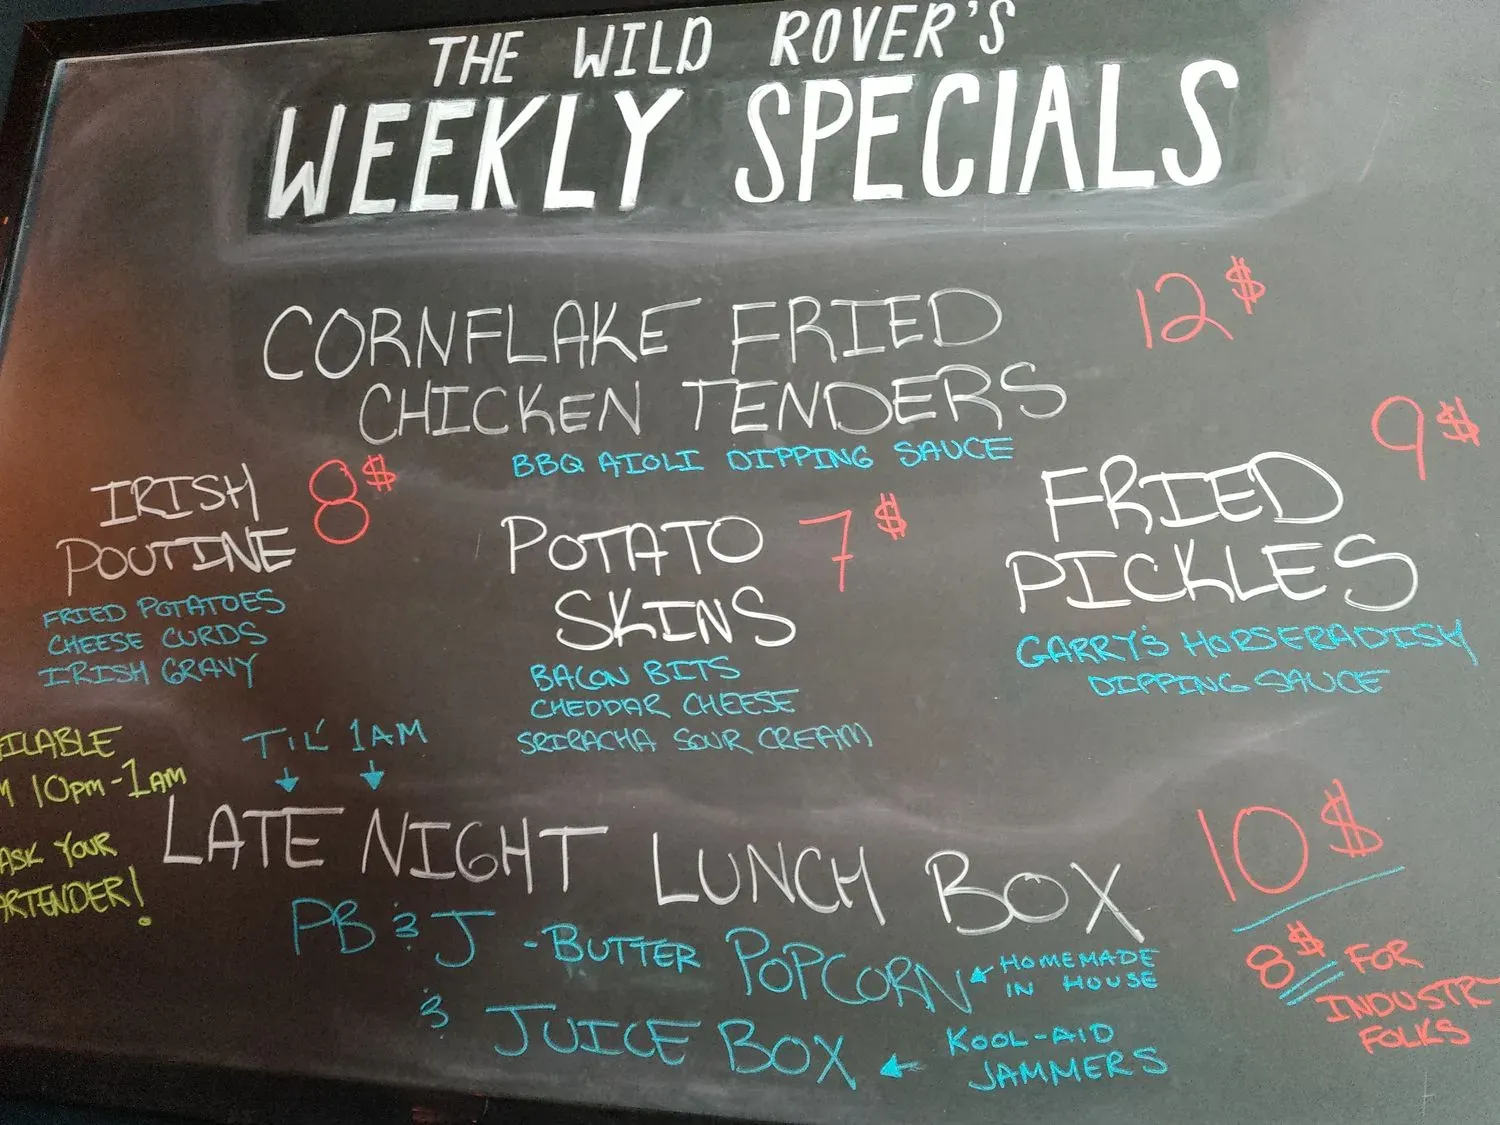 THE WILD ROVER'S
WEEKLY SPECIALS
CORNFLAKE FRIED
CHICKEN TENDERS
12$
BBQ AIOLI DIPPING SAUCE
IRISH
POUTINE
8$
FRIED POTATOES
CHEESE CURDS
IRISH GRAVY
POTATO
SKINS
7$
BACON BITS
CHEDDAR CHEESE
SRIRACHA SOUR CREAM
FRIED
PICKLES
9$
GARRY'S HORSERADISH
DIPPING SAUCE
10PM-1AM
ASK YOUR
TIL' 1AM
LATE NIGHT LUNCH BOX
10$
PB & J - BUTTER POPCORN
HOMEMADE
IN HOUSE
& JUICE BOX
KOOL-AID
JAMMERS
8$ FOR
FOLKS